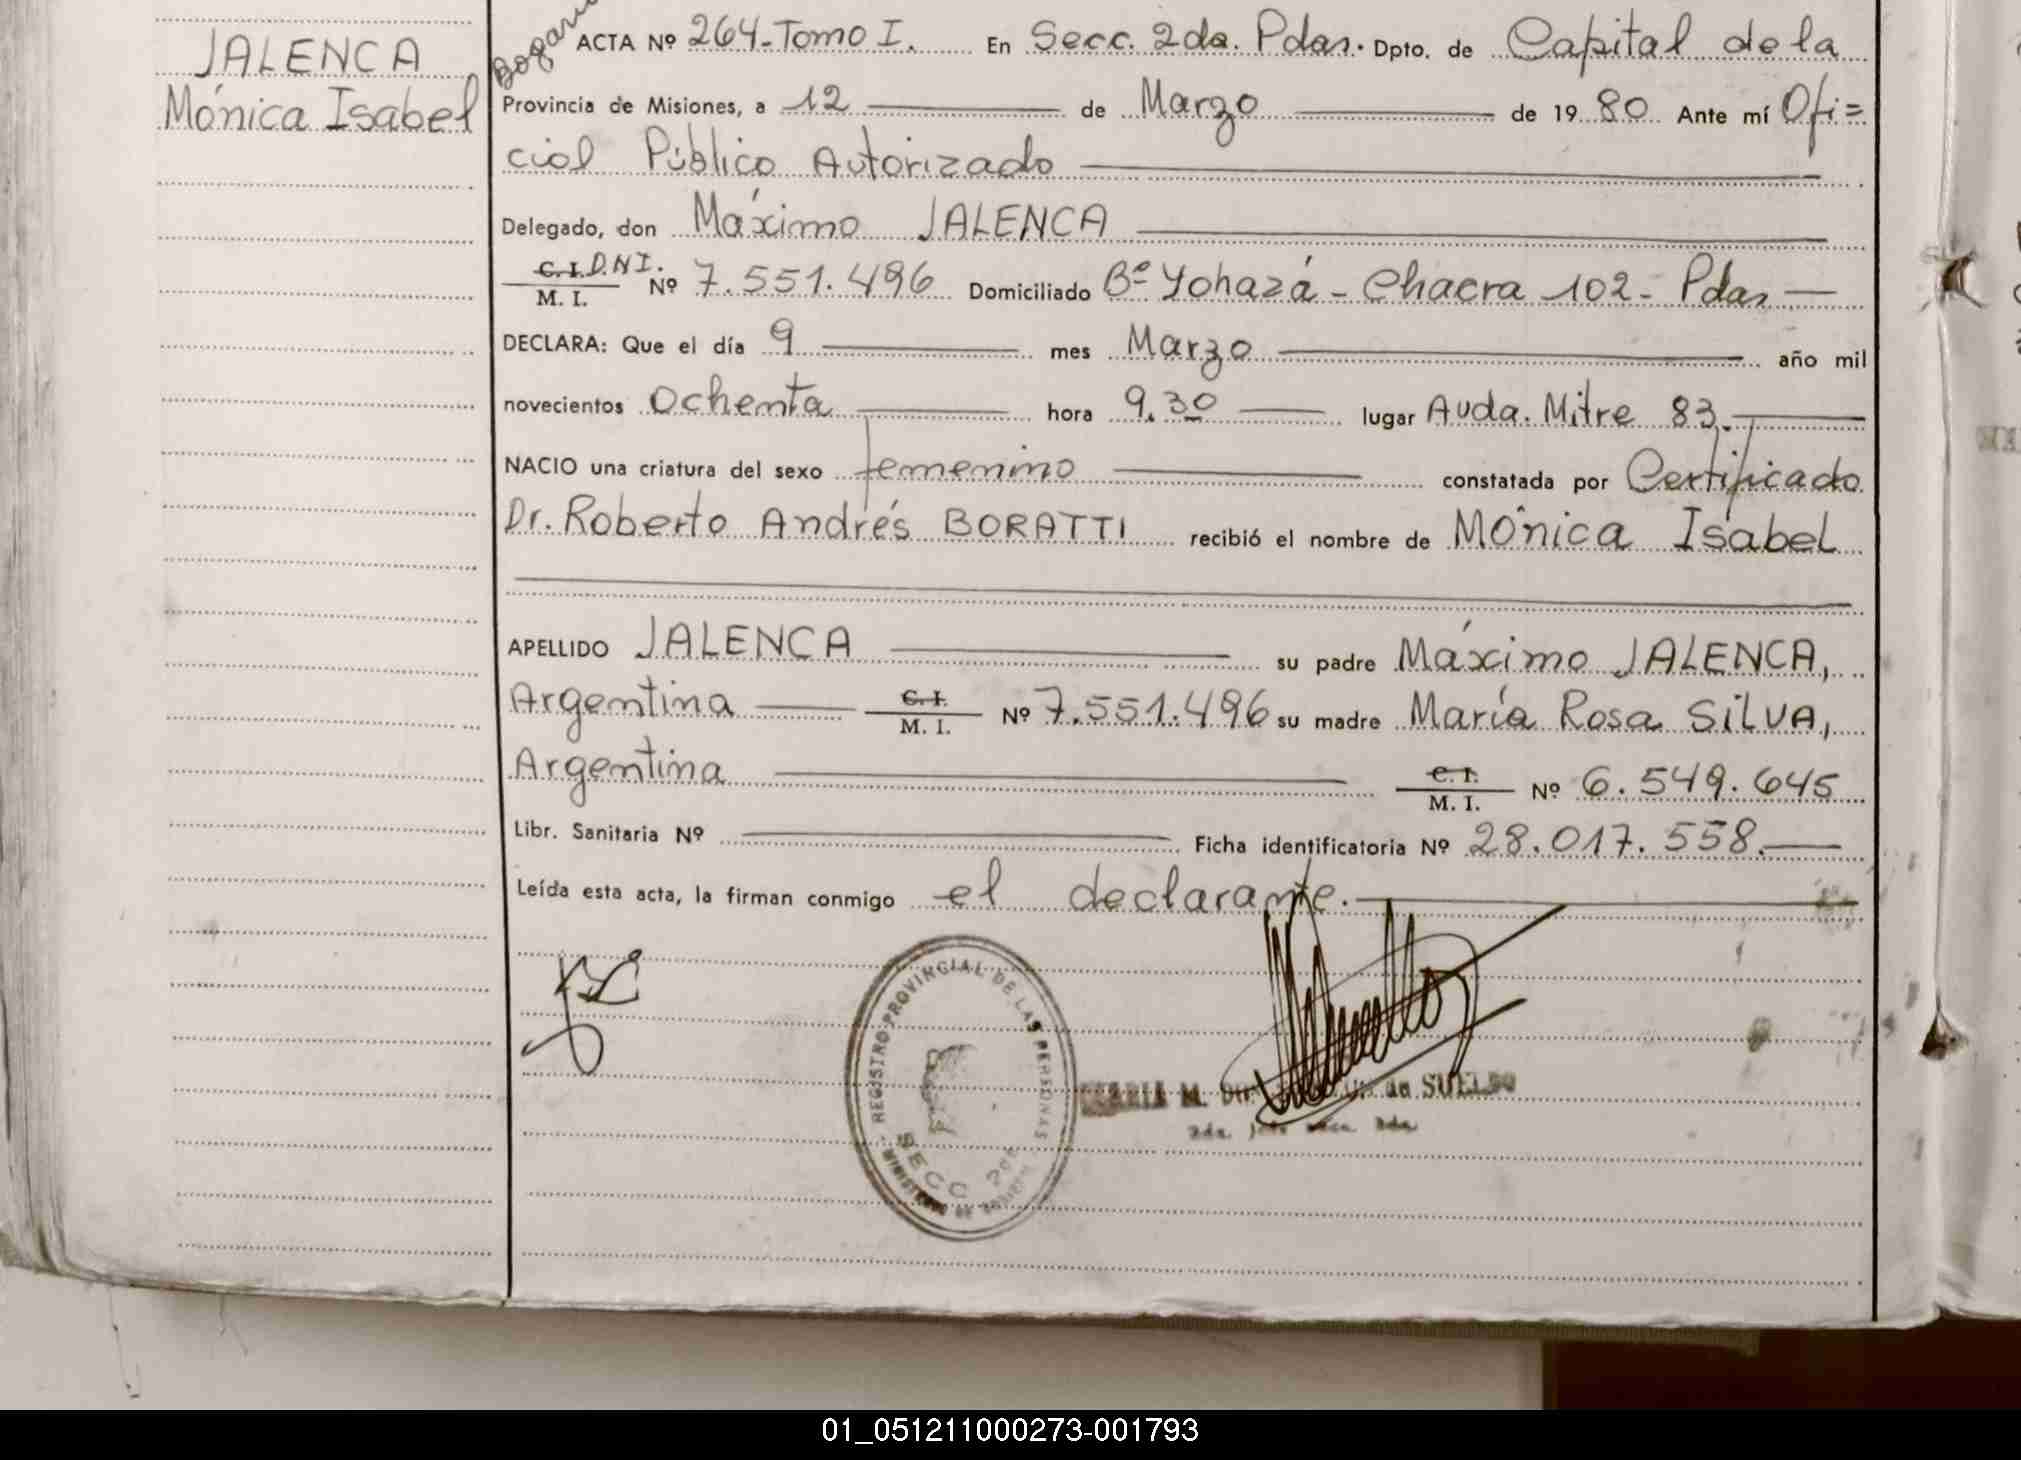 JALENCA
Mónica Isabel
ACTA Nº 264-Tomo I. En Secc. 2da. Pdas. Dpto. de Capital de la
Provincia de Misiones, a 12 de Marzo de 1980 Ante mí Ofi=
cial Público Autorizado
Delegado, don Máximo JALENCA
C. I. D.N I.
M. I. Nº 7.551.496 Domiciliado Bº Yohazá - Chacra 102 - Pdas
DECLARA: Que el día 9 mes Marzo año mil
novecientos Ochenta hora 9.30 lugar Avda. Mitre 83.
NACIO una criatura del sexo femenino constatada por Certificado
Dr. Roberto Andrés BORATTI recibió el nombre de Mónica Isabel
APELLIDO JALENCA su padre Máximo JALENCA,
Argentina C. I. M. I. Nº 7.551.496 su madre María Rosa SILVA,
Argentina C. I. M. I. Nº 6.549.645
Libr. Sanitaria Nº Ficha identificatoria Nº 28.017.558.
Leída esta acta, la firman conmigo el declarante.
REGISTRO PROVINCIAL DE LAS PERSONAS
SECC 2da
MINISTERIO DE GOBIERNO
M. de SUELDO
2da. Jefe Secc. 2da
01_051211000273-001793